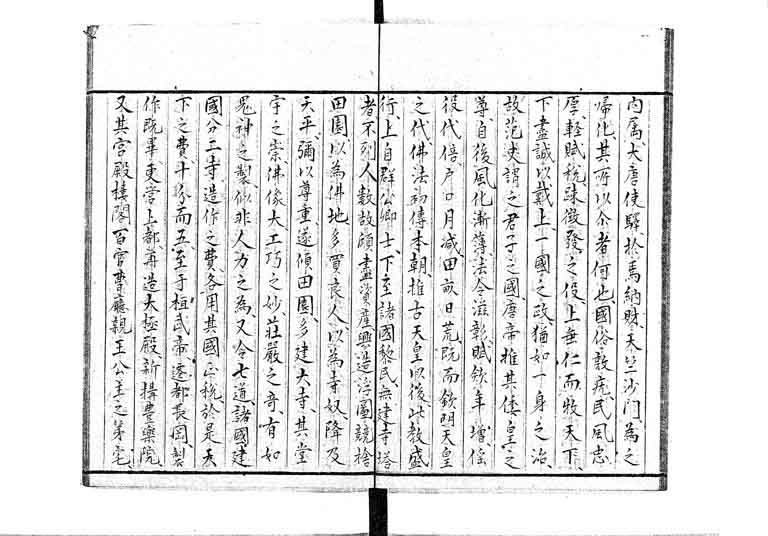 内属、大唐使驛於馬納財、天竺沙門為之
帰化、其所以尒者何也、國俗敦厖、民風忠
厚、軽賦税、疎徴發之役、上垂仁而牧天下、
下盡誠以戴上、一國之政、猶如一身之治、
故范史謂之君子之國、唐帝推其倭皇之
尊、自後風化漸薄、法令滋彰、賦歛年増、徭
役代倍、戸口月減、田畝日荒、既而欽明天皇
之代、佛法初傳本朝、推古天皇以後、此教盛
行、上自群公卿士、下至諸國黎民、無建寺塔
者、不列人數、故傾盡資産、興造浮圖、競捨
田園、以為佛地、多買良人、以為寺奴、降及
天平、彌以尊重、遂傾田園、多建大寺、其堂
宇之崇、佛像大、工巧之妙、莊嚴之奇、有如
鬼神之製、似非人力之為、又令七道諸國建
國分二寺、造作之費、各用其國正税、於是天
下之費、十分而五、至于桓武帝、遷都長岡、製
作既畢、更営上都、再造大極殿、新搆豊樂院、
又其宮殿樓閣、百官曹廳、親王公主之第宅、